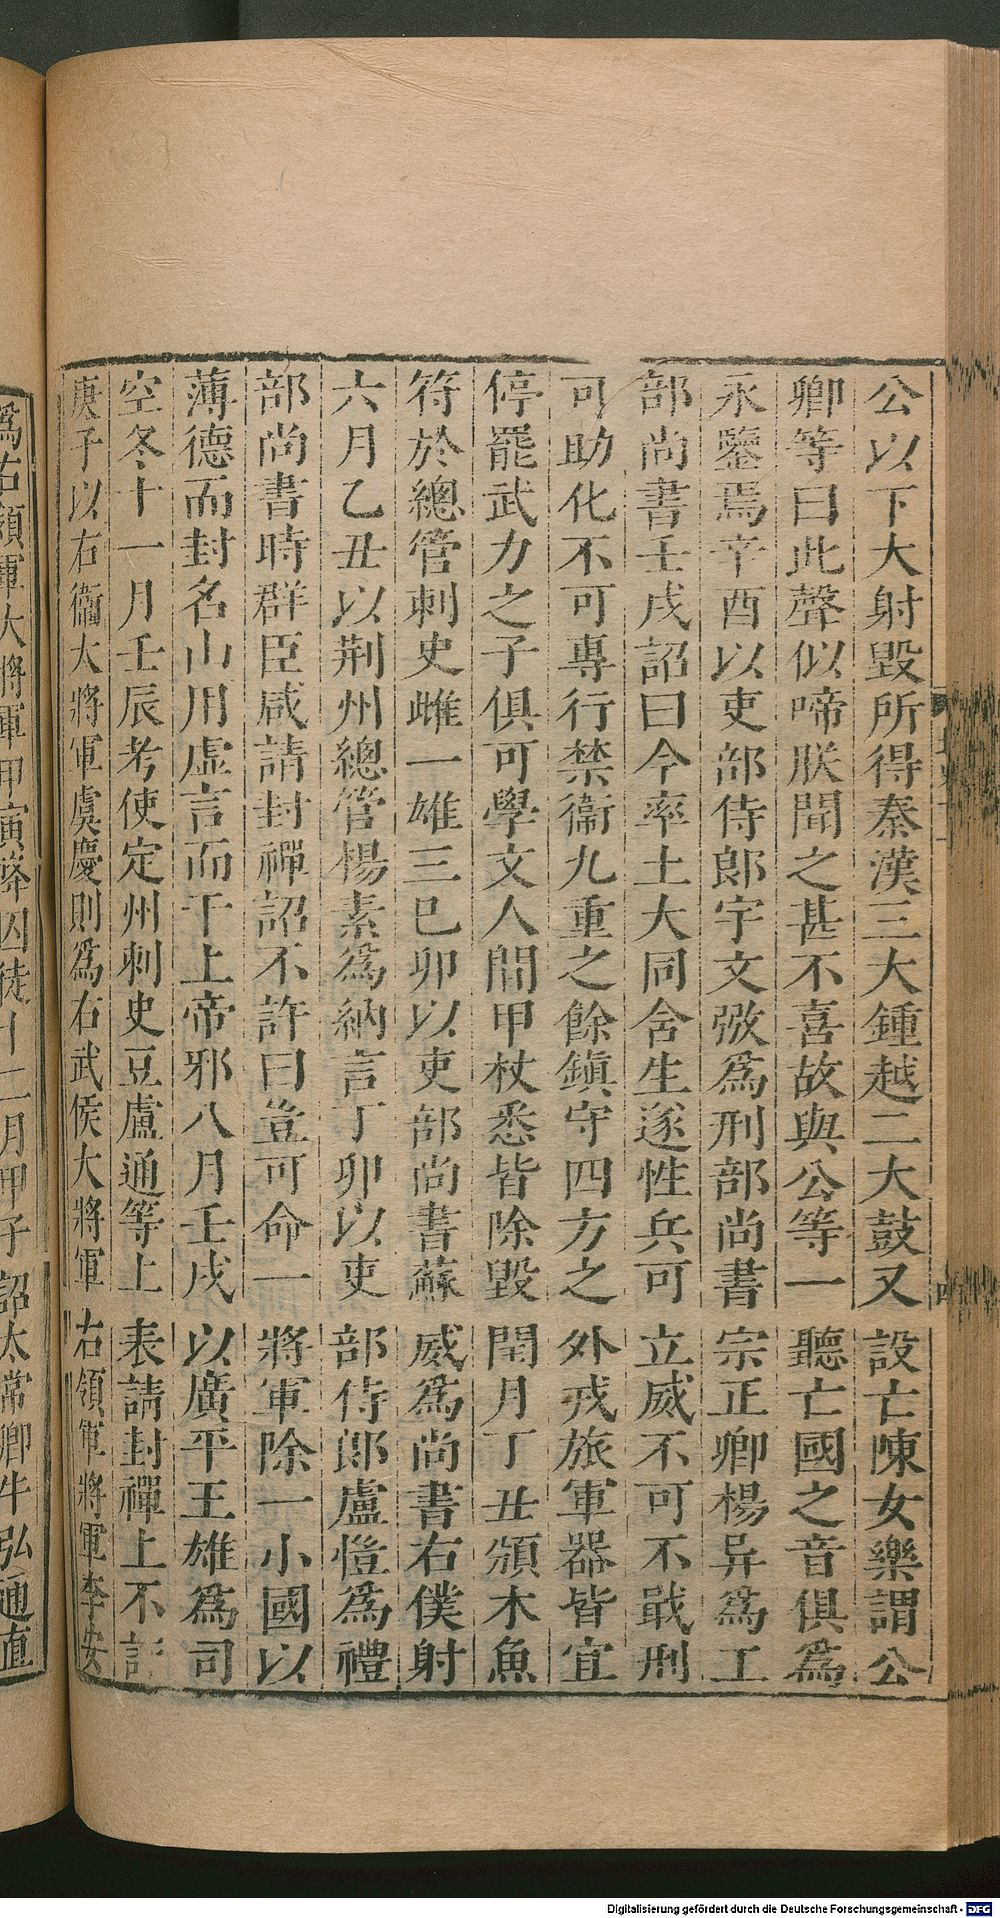 公以下大射毀所得秦漢三大鍾越二大鼓又設亡陳女樂謂公
卿等曰此聲似啼朕聞之甚不喜故與公等一聽亡國之音俱爲
永鑒焉辛酉以吏部侍郎宇文㢸爲刑部尚書宗正卿楊异爲工
部尚書壬戌詔曰今率土大同含生遂性兵可立威不可不戢刑
可助化不可專行禁衞九重之餘鎮守四方之外戎旅軍器皆宜
停罷武力之子俱可學文人間甲杖悉皆除毀閏月丁丑頒木魚
符於總管刺史雌一雄三巳卯以吏部尚書蘇威爲尚書右僕射
六月乙丑以荆州總管楊素爲納言丁卯以吏部侍郎盧愷爲禮
部尚書時群臣咸請封禪詔不許曰豈可命一將軍除一小國以
薄德而封名山用虚言而干上帝邪八月壬戌以廣平王雄爲司
空冬十一月壬辰考使定州刺史豆盧通等上表請封禪上不許
庚子以右衞大將軍虞慶則爲右武侯大將軍右領軍將軍李安
爲右領軍大將軍甲寅降囚徒十二月甲子詔太常卿牛弘通直
Digitalisierung gefördert durch die Deutsche Forschungsgemeinschaft - DFG